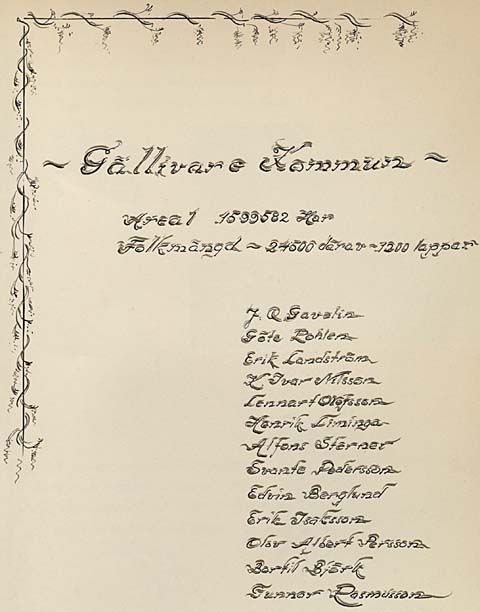 ~ Gällivare Kommun ~
Areal 1599582 Har
Folkmängd ≈ 24500 därav ≈ 1200 lappar
J. O. Gavelin
Göte Pohlen
Erik Landström
K Ivar Nilsson
Lennart Olofsson
Henrik Liminga
Alfons Sterner
Svante Pedersson
Edvin Berglund
Erik Isaksson
Olov Albert Persson
Bertil Björk
Gunnar Rasmusson